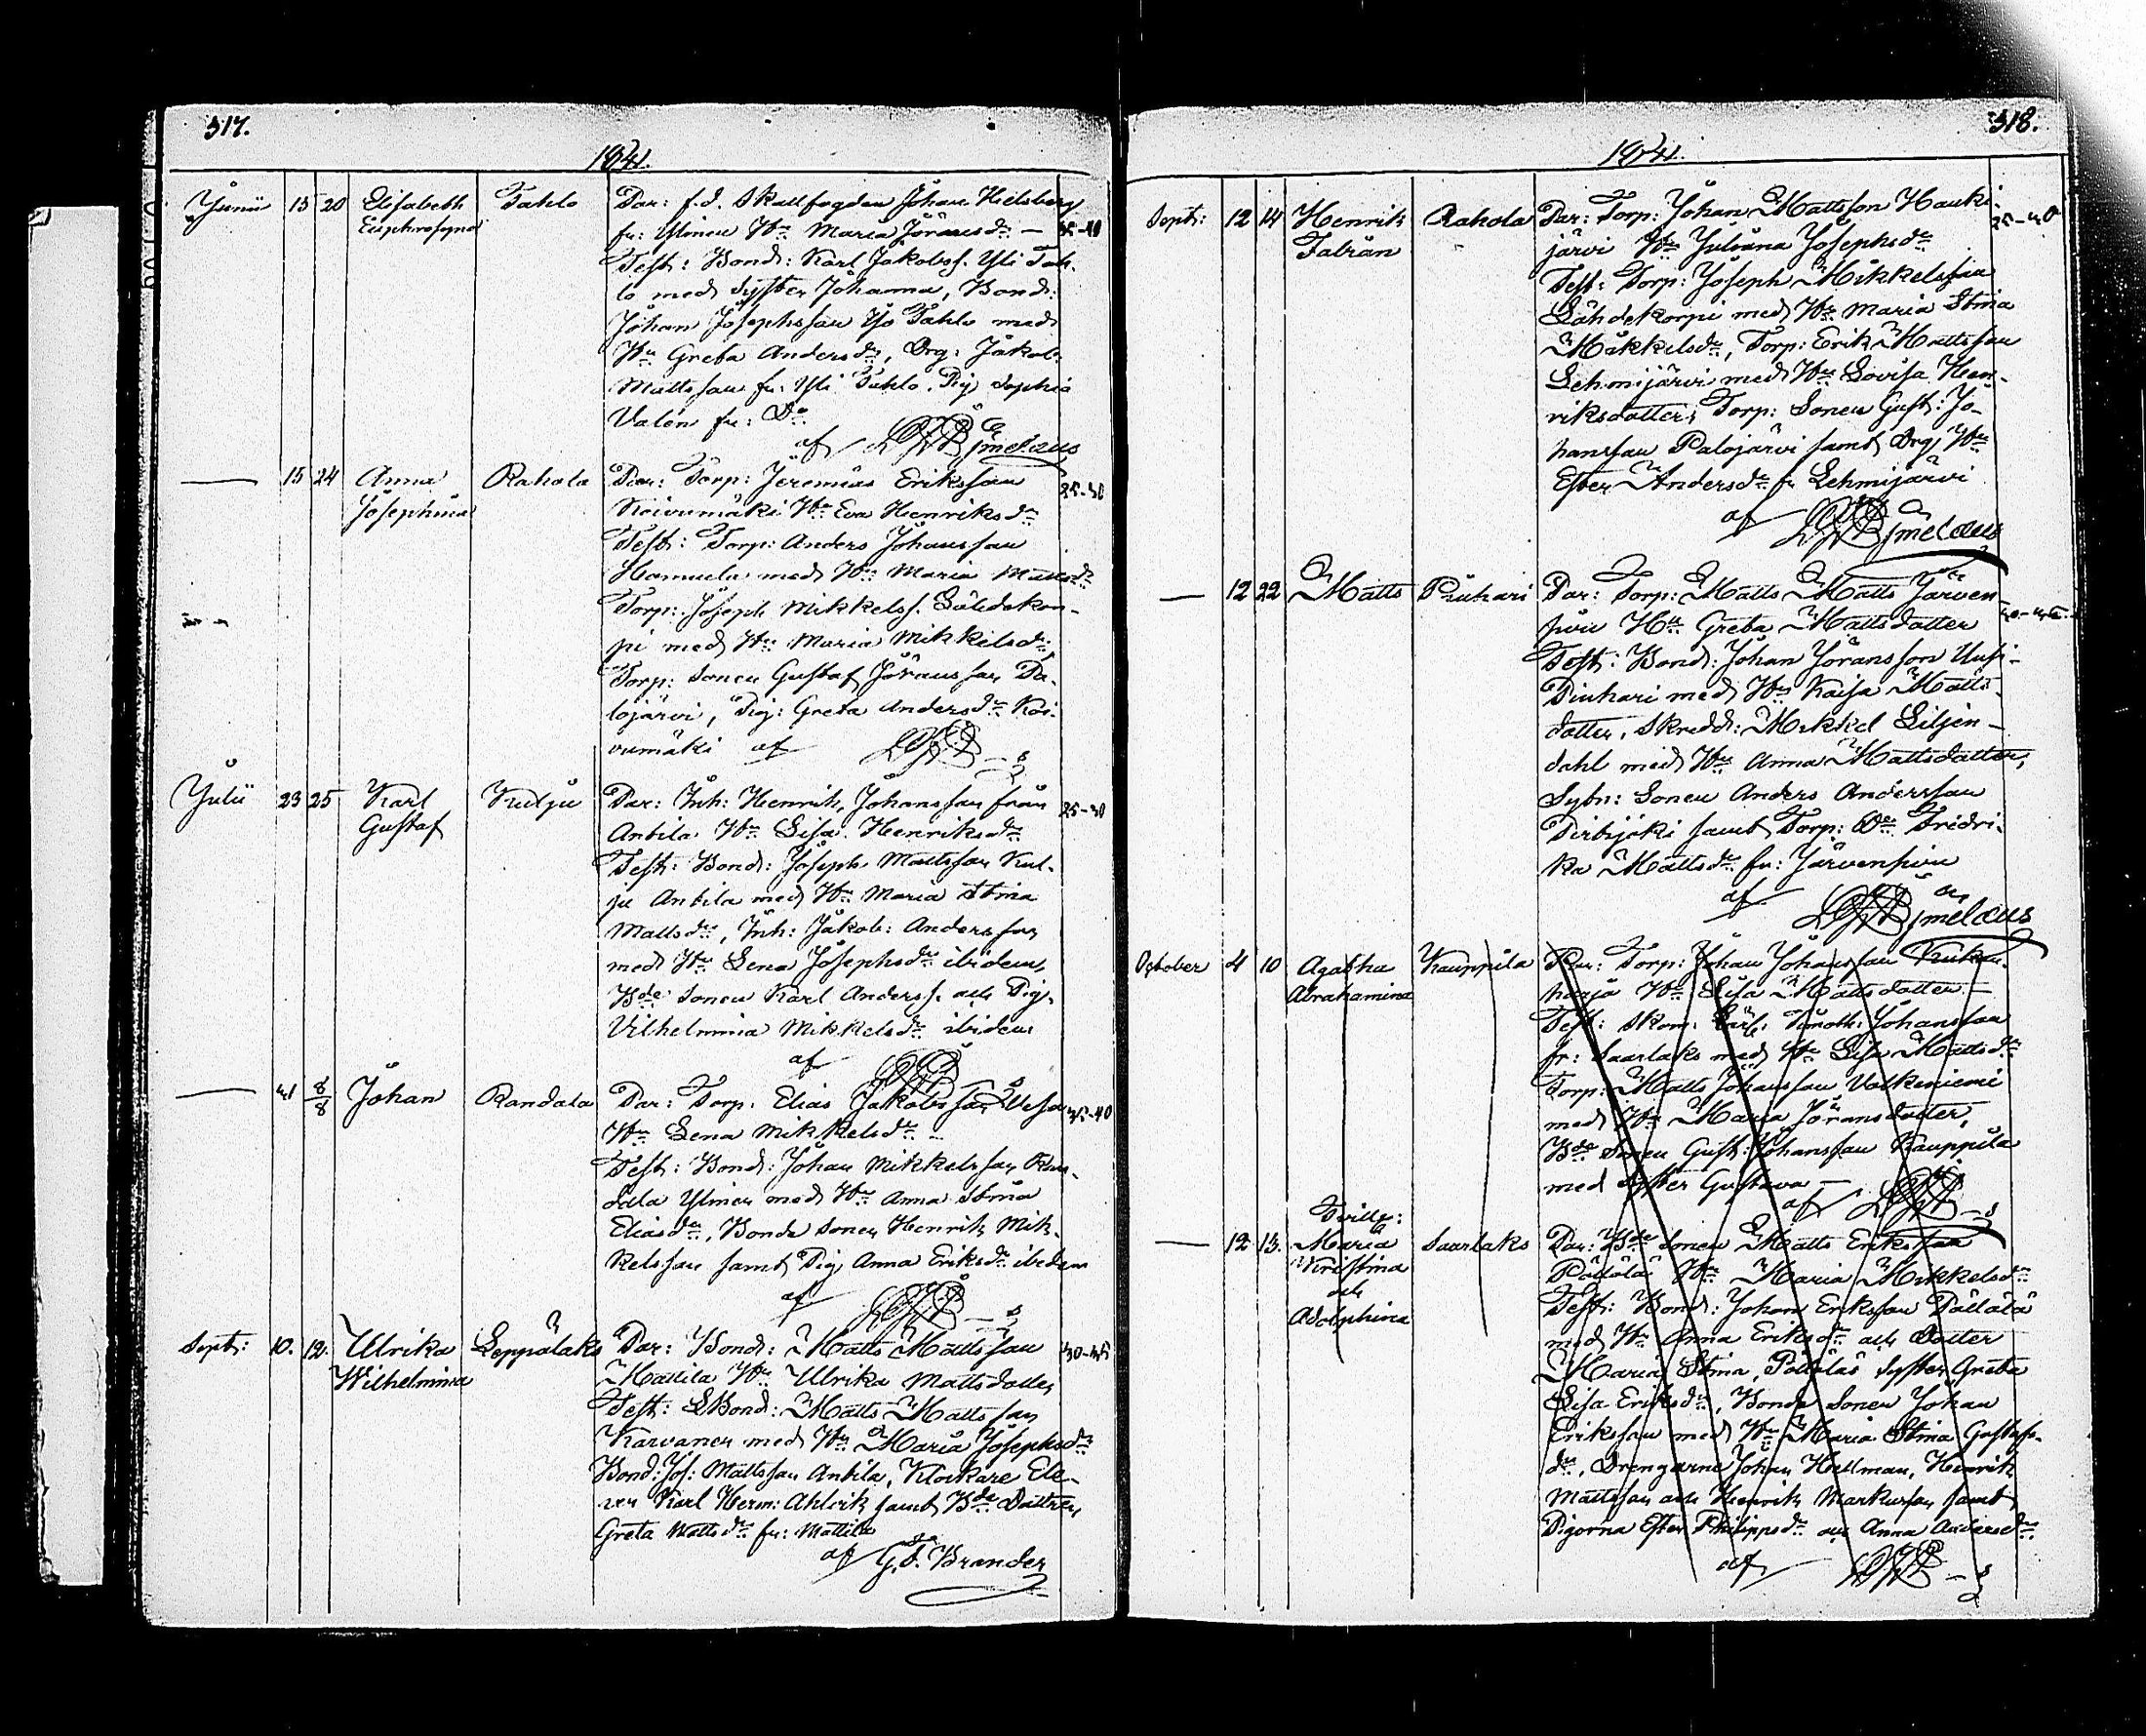 317.
1841.
Junii 15 20 Elisabeth Tahlo Par: f.d. Skallfogden Johan Hielsberg
Euphrosyna fr: Ylinen Hu Maria Jöransdr — 35-40
Test: Bond: Karl Jakobss. Yli Tah-
lo med Syster Johanna, Bond:
Johan Josephsson Iso Tahlo med
Hu Greta Andersdr, Drg: Jakob
Mattsson fr: Yli Tahlo, Pig Sophia
Valen fr: Do
af
— 15 24 Anna Rahola Par: Torp: Jeremias Eriksson 25-30
Josephina Koivumäki Hu Eva Henriksdr
Test: Torp: Anders Johansson
med Hu Maria Mattsdr
Torp: Joseph Mikkelss. Lähdekor-
pi med Hu Maria Mikkelsdr,
Torp: Sonen Gustaf Jöransson Pa-
lojärvi, Pig: Greta Andersdr Koi-
vumäki af
Julii 23 25 Karl Kulju Par: Inh: Henrik Johansson från 25-30
Gustaf Antila Hu Lisa Henriksdr
Test: Bond: Joseph Mattsson Kul-
ju Antila med Hu Maria Stina
Mattsdr, Inh: Jakob: Andersson
med Hu Lena Josephsdr ibidem,
Bde Sonen Karl Anderss. och Pig.
Vilhelmina Mikkelsdr ibidem
af
— 8/8 Johan Randala Par: Torp: Elias Jakobsson Vesa 35-40
Hu Lena Mikkelsdr
Test: Bond: Johan Mikkelsson Ran-
dala Ylinen med Hu Anna Stina
Eliasdr, Bonde Sonen Henrik Mik-
kelsson samt Pig Anna Eriksdr ibidem
af
Sept: 10. 12. Ulrika Leppälaks Par: Bond: Matts Mattsson
Wilhelmina Mattila Hu Ulrika Mattsdotter
Test: Bond: Matts Mattsson
Karvanen med Hu Maria Josephsdr
Bond: Jos: Mattsson Antila, Klockare Ele-
ven Karl Herm: Ahlvik samt Bde Dottren
Greta Mattsdr fr: Mattila
af G.F. Brander
318.
1841.
Sept: 12 14 Henrik Rahola Par: Torp: Johan Mattsson Hauki-
Fabian järvi Hu Juliana Josephsdr
Test: Torp: Joseph Mikkelsson
Lähdekorpi med Hu Maria Stina
Mikkelsdr, Torp: Erik Mattsson
Lehmijärvi med Hu Lovisa Hen-
riksdotter, Torp: Sonen Gust: Jo-
hansson Palojärvi samt Drg Hu
Ester Andersdr fr Lehmijärvi
af
— 12 22 Matts Piuhari Par: Torp: Matts Matts Järven-
Hu Greta Mattsdotter
Test: Bond: Johan Jöransson Uusi-
Piuhari med Hu Kaisa Matts-
dotter, Skrædd: Mikkel Liljen-
dahl med Hu Anna Mattsdotter,
Sytn: Sonen Anders Andersson
samt Torp: Dr Fredri-
ka Mattsdr fr: Järvenpään
af
October 4 10 Agatha Kauppila Par: Torp: Johan Johansson
Abrahamina harja Hu Lisa Mattsdotter —
Test: Skom: Timoth: Johansson
fr: Saarlaks med Hu Lisa Mattsdr
Torp: Matts Johansson Valkeniemi
med Hu Maria Jöransdotter,
Bde Sonen Gust: Johansson Kauppila
med Syster Gustava —
af
Tvillg:
— 12 13. Maria Saarlaks Par: Bde Sonen Matts Eriksson
Kristina Pällälä Hu Maria Mikkelsdr
och Test: Bond: Johan Eriksson Pällälä
Adolphina med Hu Anna Eriksdr och Dotter
Maria Stina, Pällälä Syster Greta
Lisa Eriksdr, Bonde Sonen Johan
Eriksson med Hu Maria Stina Gustafs-
dr, Drengarna Johan Hellman, Henrik
Mattsson och Henrik Markusson samt
Pigorna Ester Philippsdr och Anna Andersdr.
af